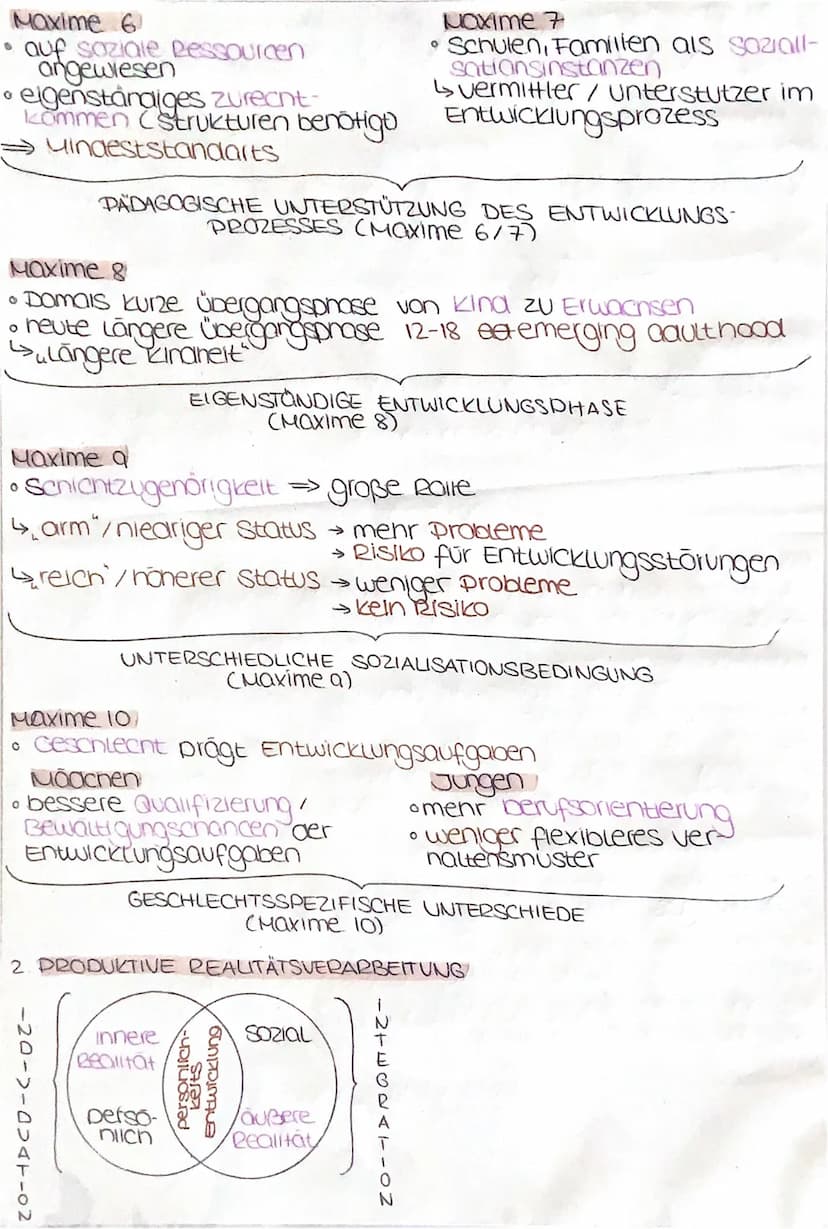 Maxime 6
• auf soziale Ressourcen
angewiesen
• eigenständiges zurecht-
kommen (Strukturen benötigt)
⇒ Mindeststandarts
Maxime 7
• Schulen, Familien als Soziali-
sationsinstanzen
↳ Vermittler / Unterstützer im
Entwicklungsprozess
PÄDAGOGISCHE UNTERSTÜTZUNG DES ENTWICKLUNGS-
PROZESSES (Maxime 6/7)
Maxime 8
• Damals kurze Übergangsphase von Kind zu Erwachsen
• heute längere Übergangsphase 12-18 emerging adulthood
↳ „längere Kindheit“
EIGENSTÄNDIGE ENTWICKLUNGSPHASE
(Maxime 8)
Maxime 9
• Schichtzugehörigkeit ⇒ große Rolle
↳ „arm“ / niedriger Status → mehr Probleme
→ Risiko für Entwicklungsstörungen
↳ „reich“ / höherer Status → weniger Probleme
→ kein Risiko
UNTERSCHIEDLICHE SOZIALISATIONSBEDINGUNG
(Maxime 9)
Maxime 10
• Geschlecht prägt Entwicklungsaufgaben
Mädchen
• bessere Qualifizierung /
Bewältigungschancen der
Entwicklungsaufgaben
Jungen
• mehr Berufsorientierung
• weniger flexibleres Ver-
haltensmuster
GESCHLECHTSSPEZIFISCHE UNTERSCHIEDE
(Maxime 10)
2. PRODUKTIVE REALITÄTSVERARBEITUNG
INDIVIDUATION
innere
Realität
persö-
nlich
persönlich-
keits
entwicklung
SOZIAL
äußere
Realität
INTEGRATION